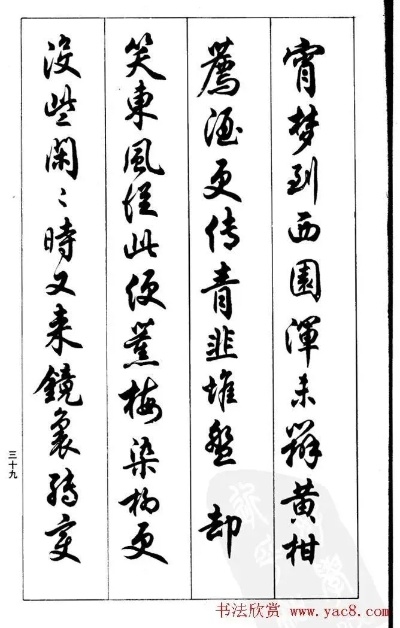 宵梦到西園渾未辦黄柑
薦酒更传青韭堆盤却
笑東風從此便薰梅染柳更
没些閑〻時又来鏡裏轉变
三十九
书法欣赏 www.yac8.com